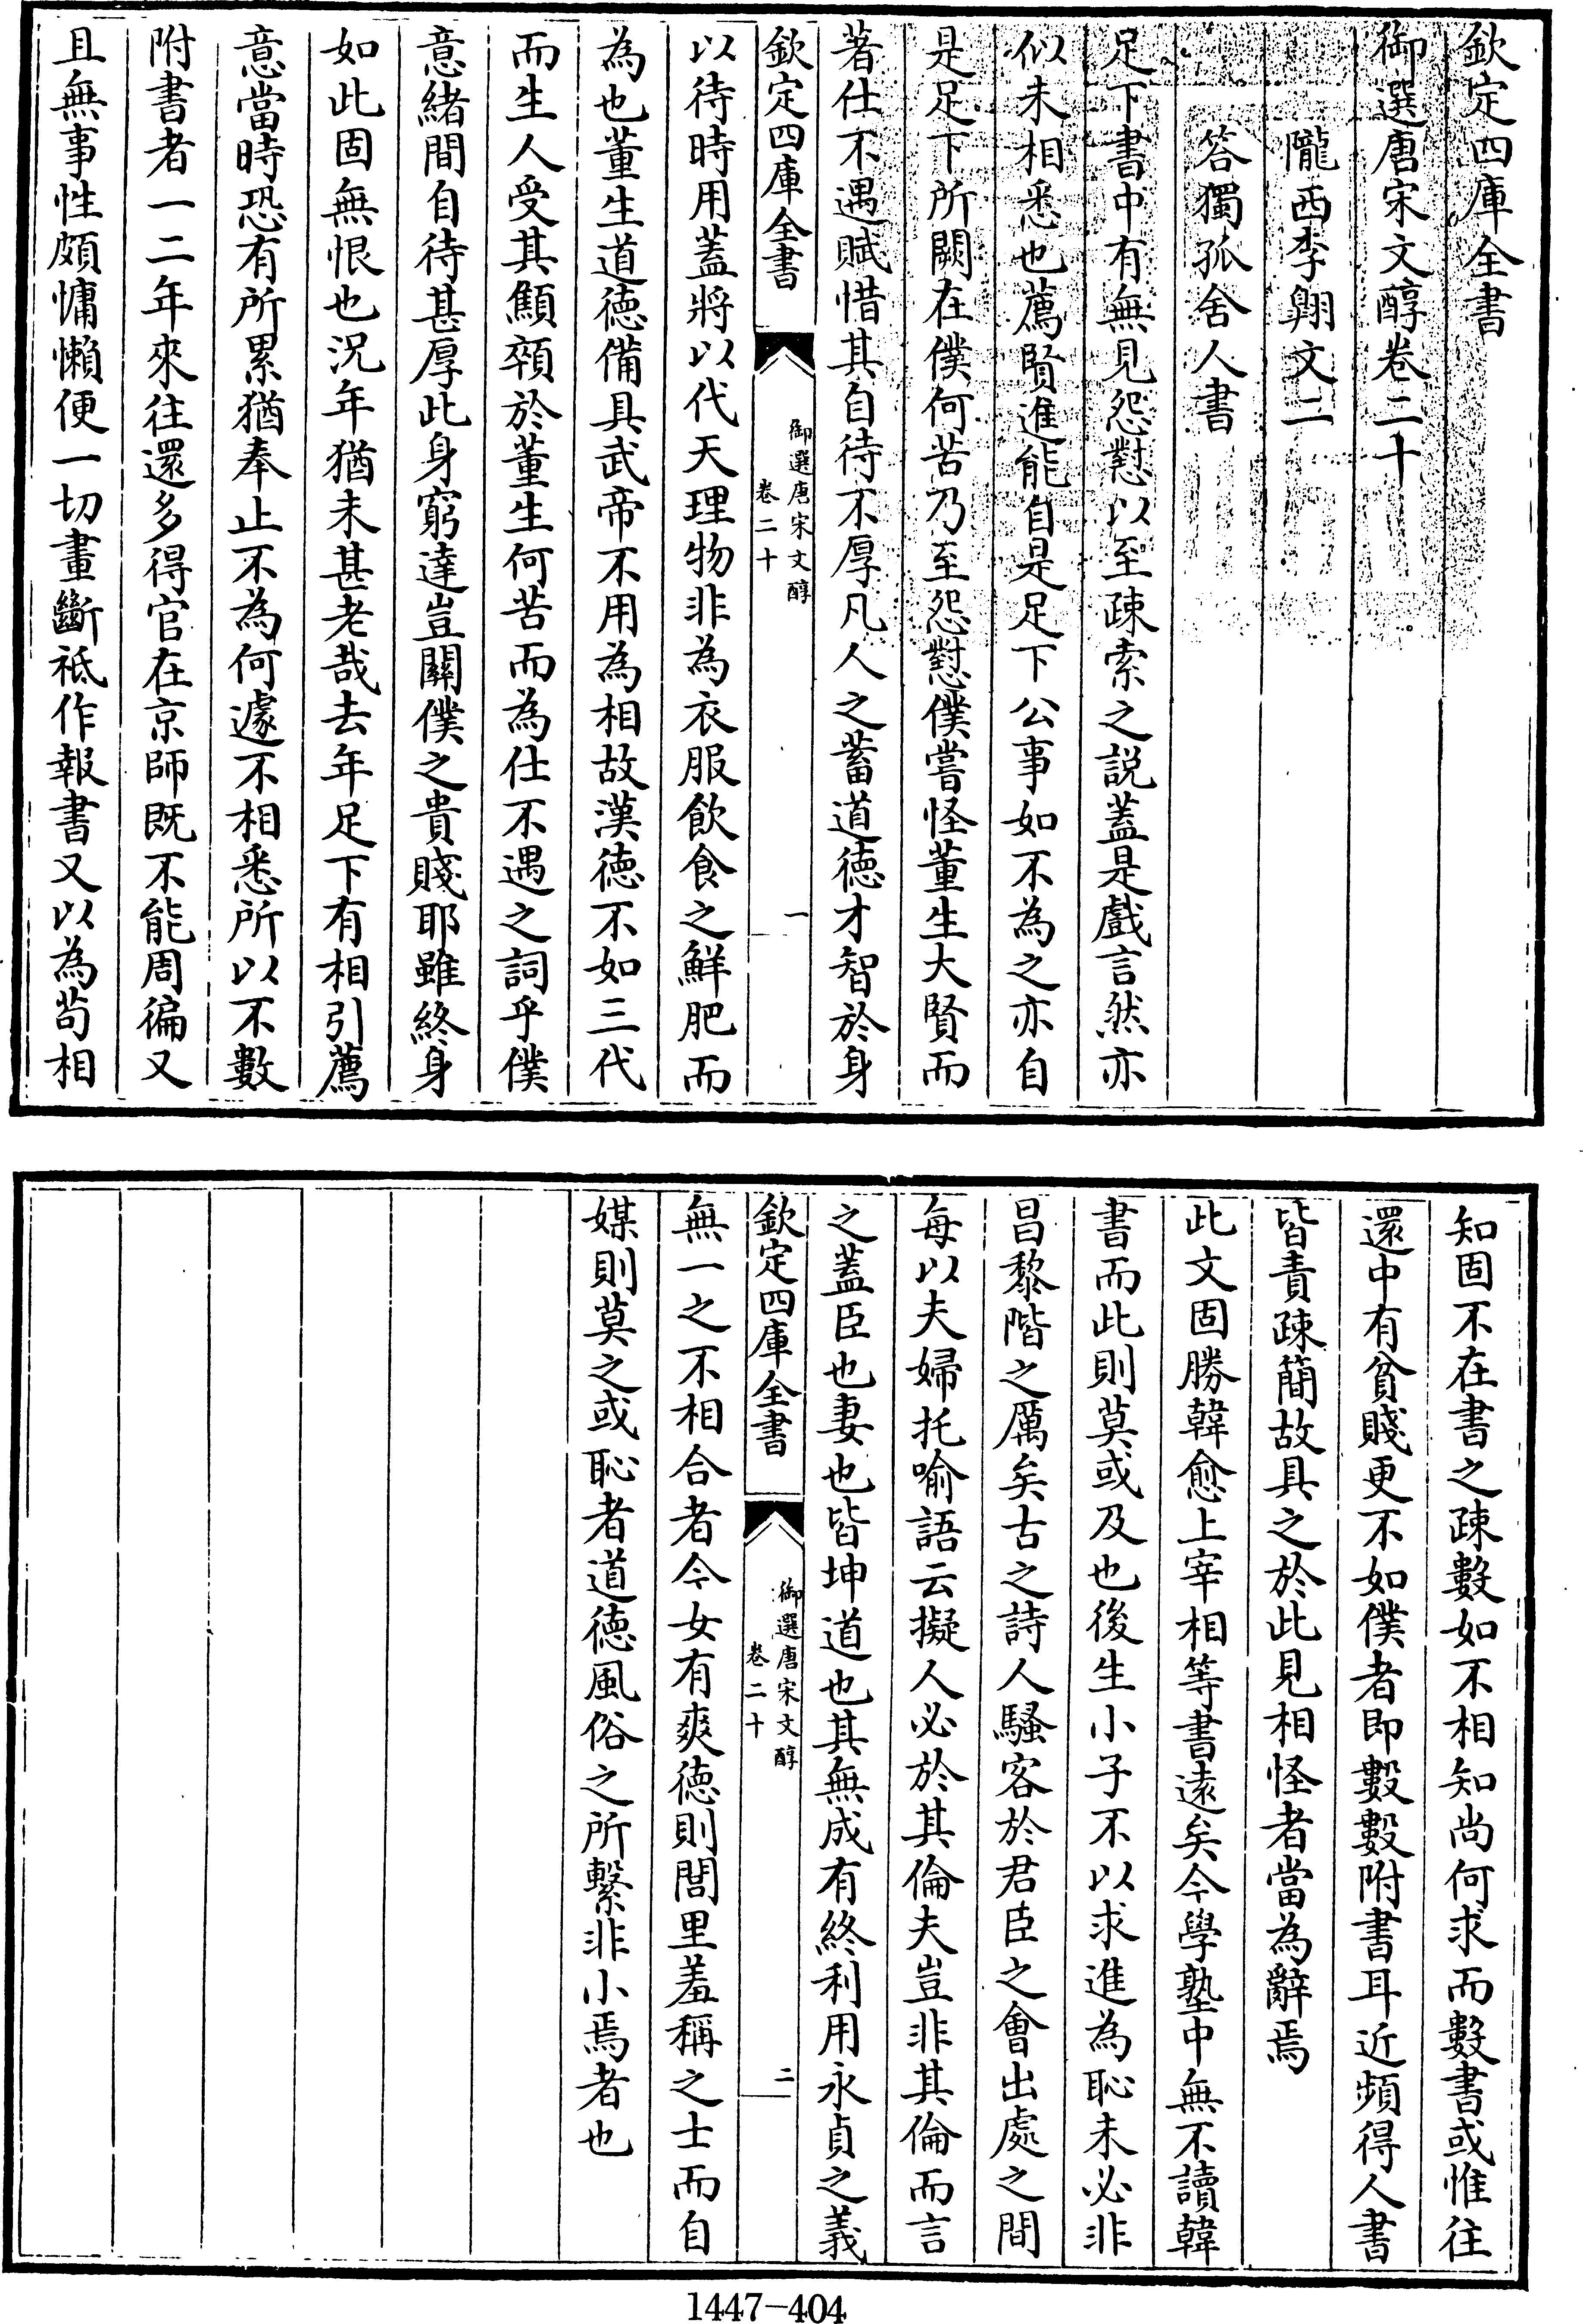 欽定四庫全書
御選唐宋文醇卷二十
隴西李翺文二
答獨孤舍人書
足下書中有無見怨懟以至疎索之説蓋是戲言然亦
似未相悉也薦賢進能自是足下公事如不為之亦自
是足下所闕在僕何苦乃至怨懟僕嘗怪董生大賢而
著仕不遇賦惜其自待不厚凡人之蓄道徳才智於身
欽定四庫全書
御選唐宋文醇
卷二十
一
以待時用蓋將以代天理物非為衣服飲食之鮮肥而
為也董生道徳備具武帝不用為相故漢徳不如三代
而生人受其顦顇於董生何苦而為仕不遇之詞乎僕
意緒間自待甚厚此身窮達豈關僕之貴賤耶雖終身
如此固無恨也況年猶未甚老哉去年足下有相引薦
意當時恐有所累猶奉止不為何遽不相悉所以不數
附書者一二年來往還多得官在京師既不能周徧又
且無事性頗慵懶便一切畫斷祗作報書又以為茍相
知固不在書之疎數如不相知尚何求而數書或惟往
還中有貧賤更不如僕者即數數附書耳近頻得人書
皆責疎簡故具之於此見相怪者當為辭焉
此文固勝韓愈上宰相等書逺矣今學塾中無不讀韓
書而此則莫或及也後生小子不以求進為恥未必非
昌黎階之厲矣古之詩人騷客於君臣之會出處之間
每以夫婦托喻語云擬人必於其倫夫豈非其倫而言
之蓋臣也妻也皆坤道也其無成有終利用永貞之義
欽定四庫全書
御選唐宋文醇
卷二十
二
無一之不相合者今女有爽徳則閭里羞稱之士而自
媒則莫之或恥者道徳風俗之所繫非小焉者也
1447-404